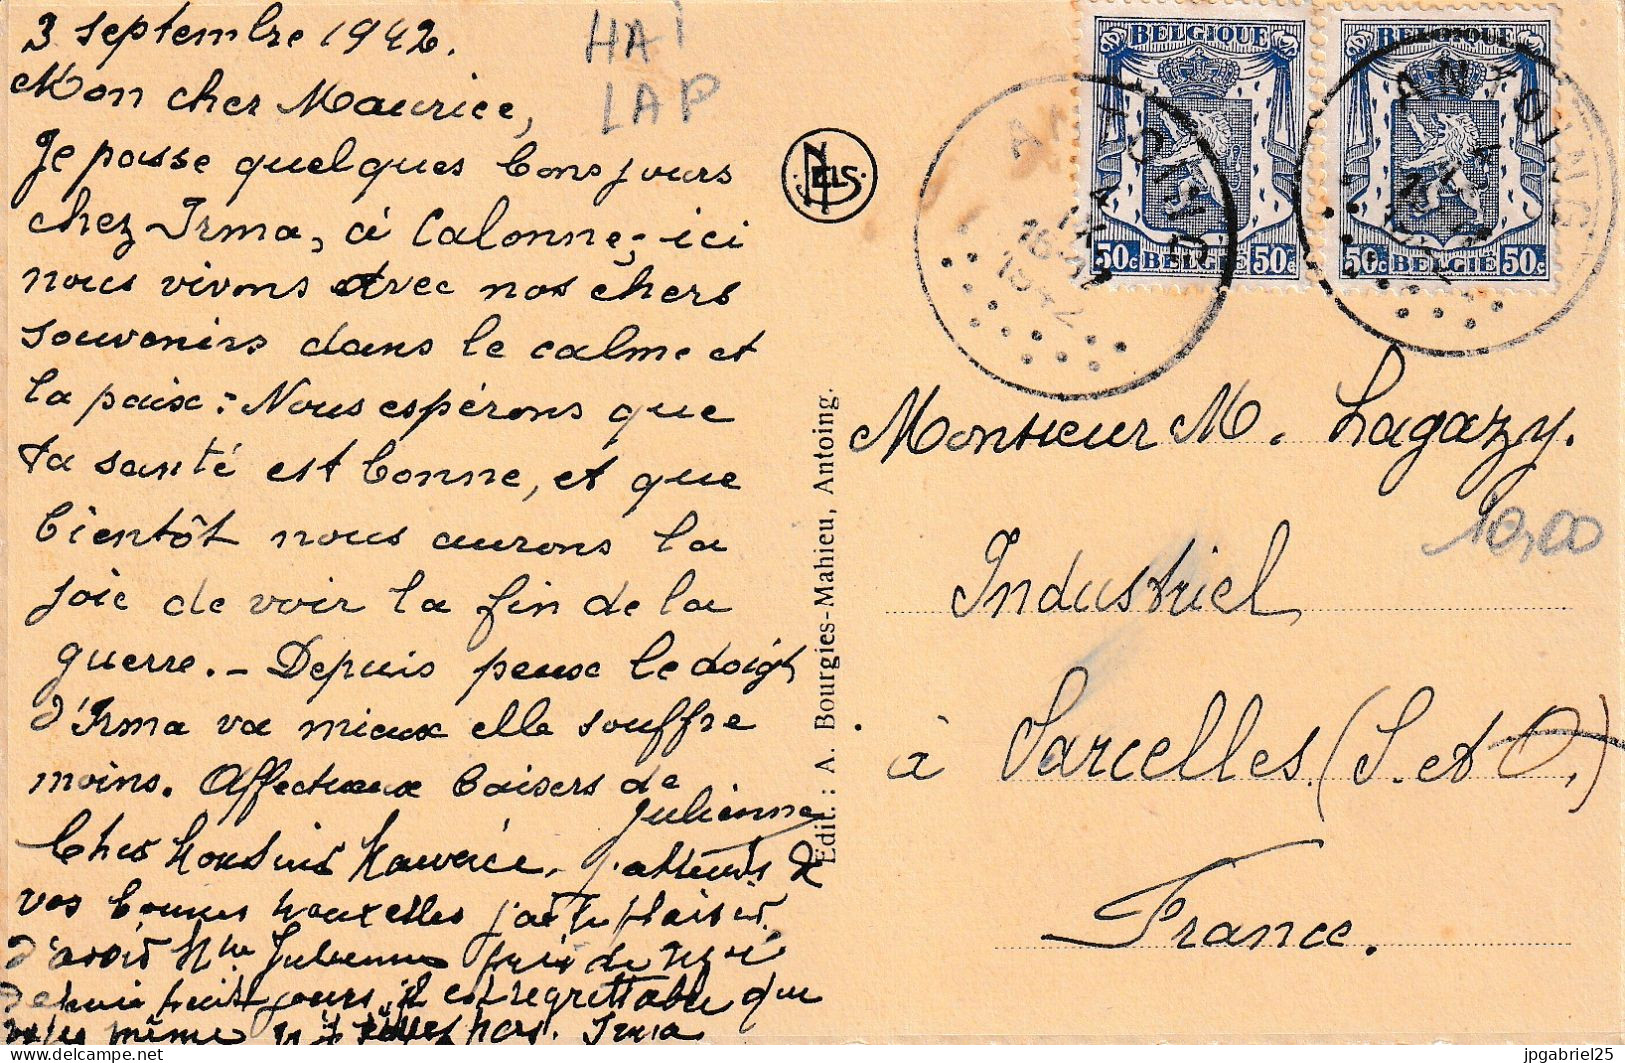 3 septembre 1942.
Mon cher Maurice,
Je passe quelques bons jours
chez Irma, à Calonne, - ici
nous vivons avec nos chers
souvenirs dans le calme et
la paix : Nous espérons que
ta santé est bonne, et que
bientôt nous aurons la
joie de voir la fin de la
guerre. - Depuis peux le doigt
d'Irma va mieux elle souffre
moins. Affectueux baisers de
Julienne
Cher Monsieur Maurice, j'attends de
vos bonnes nouvelles j'ai le plaisir
d'avoir Mme Julienne près de moi
depuis huit jours, il est regrettable que
même pas. Irma
HAI
LAP
NELS
Edit. : A. Bourgies-Mahieu, Antoing.
BELGIQUE
50c BELGIË 50c
BELGIQUE
50c BELGIË 50c
ANTOING
1942
ANTOING
Monsieur M. Lagazy.
10,00
Industriel
à Sarcelles (S. et O.)
France.
www.delcampe.net
jpgabriel25